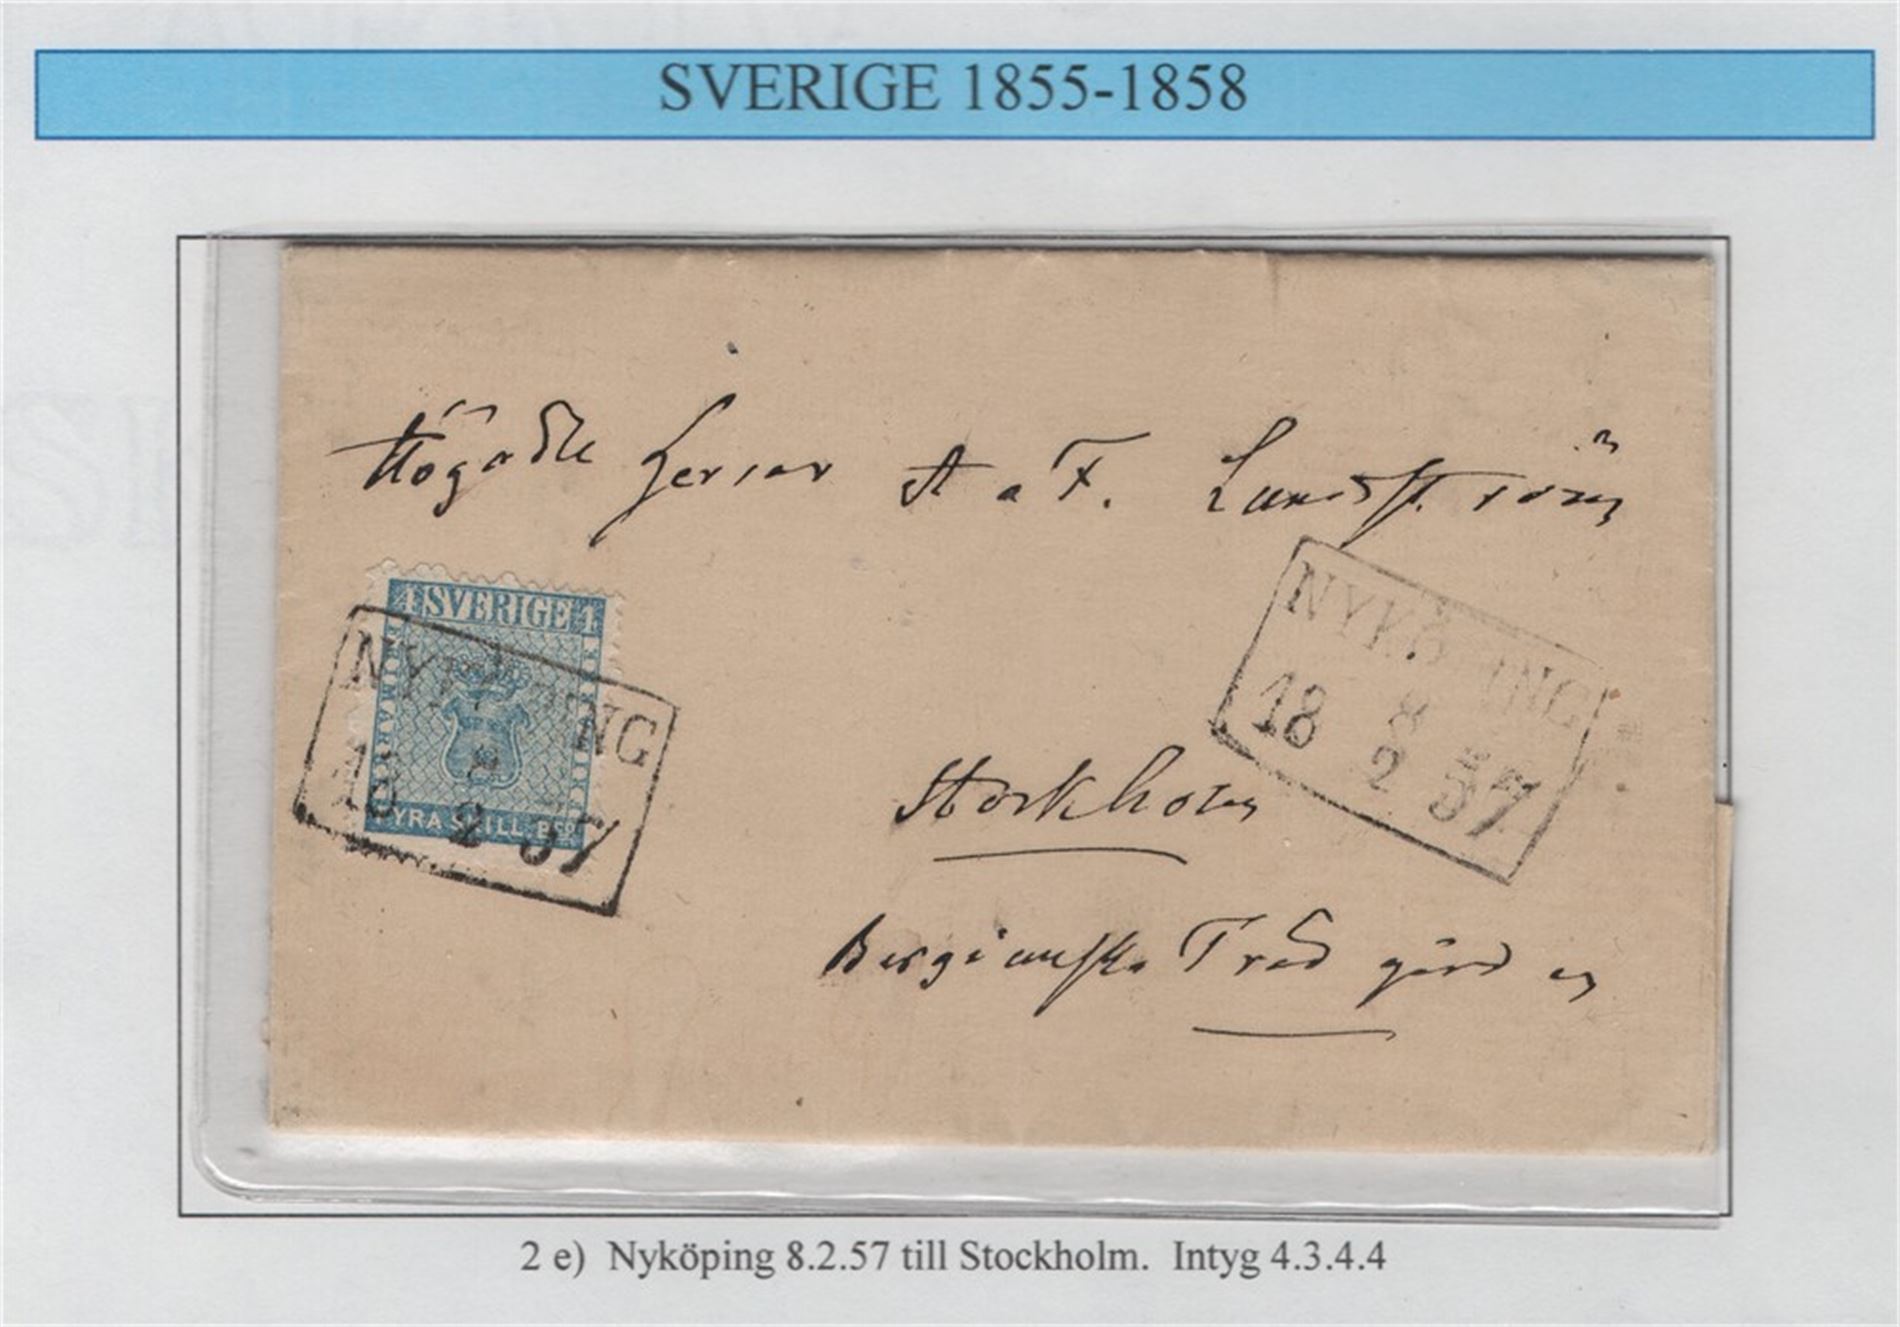 SVERIGE 1855-1858
Högädle Herrar A a F. Lundström
4 SVERIGE 4
FRIMÄRKE
FYRA SKILL. Bco
NYKÖPING
18 8 2 57
NYKÖPING
18 8 2 57
Stockholm
Bergianska Trädgården
2 e) Nyköping 8.2.57 till Stockholm. Intyg 4.3.4.4